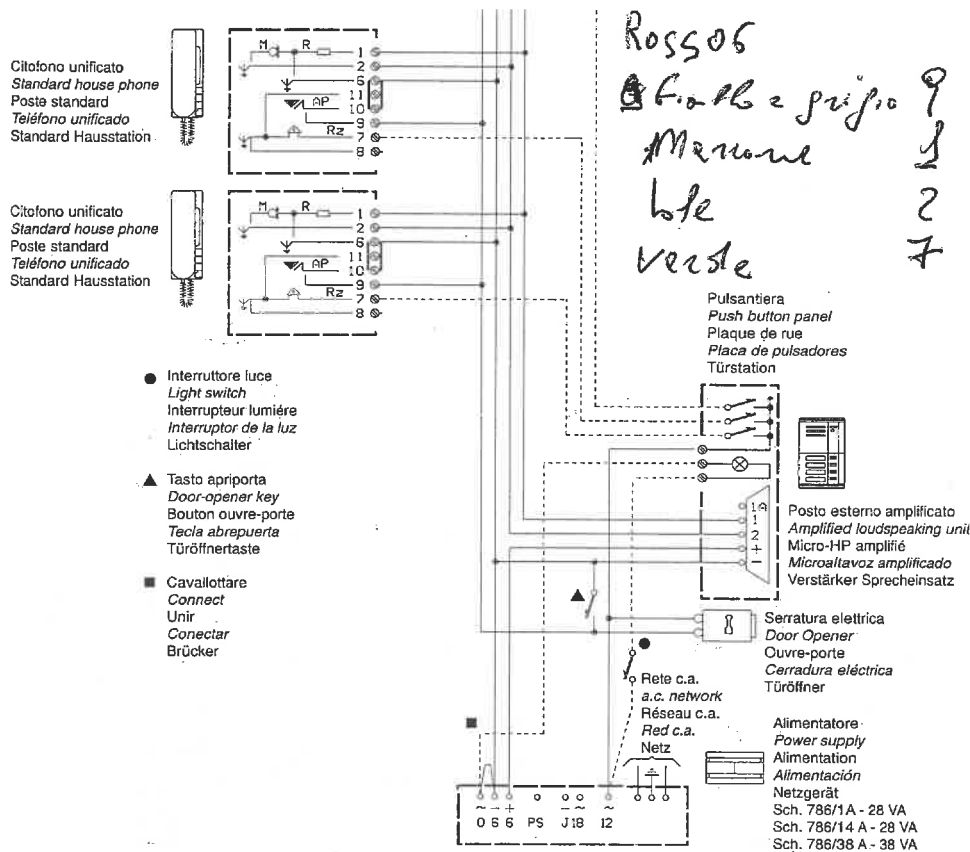 Rosso 6
Giallo e grigio 9
Marrone 1
2
verde 7
Citofono unificato
Standard house phone
Poste standard
Teléfono unificado
Standard Hausstation
M R 1
2
6
11
AP 10
9
Rz 7
8
Citofono unificato
Standard house phone
Poste standard
Teléfono unificado
Standard Hausstation
M R 1
2
6
11
AP 10
9
Rz 7
8
Interruttore luce
Light switch
Interrupteur lumiére
Interruptor de la luz
Lichtschalter
Tasto apriporta
Door-opener key
Bouton ouvre-porte
Tecla abrepuerta
Türöffnertaste
Cavallottare
Connect
Unir
Conectar
Brücker
Pulsantiera
Push button panel
Plaque de rue
Placa de pulsadores
Türstation
1A
1
2
+
−
Posto esterno amplificato
Amplified loudspeaking unit
Micro-HP amplifié
Microaltavoz amplificado
Verstärker Sprecheinsatz
Serratura elettrica
Door Opener
Ouvre-porte
Cerradura eléctrica
Türöffner
Rete c.a.
a.c. network
Réseau c.a.
Red c.a.
Netz
Alimentatore
Power supply
Alimentation
Alimentación
Netzgerät
Sch. 786/1A - 28 VA
Sch. 786/14 A - 28 VA
Sch. 786/38 A - 38 VA
~ − + − ~ ~
0 6 6 PS J 18 12